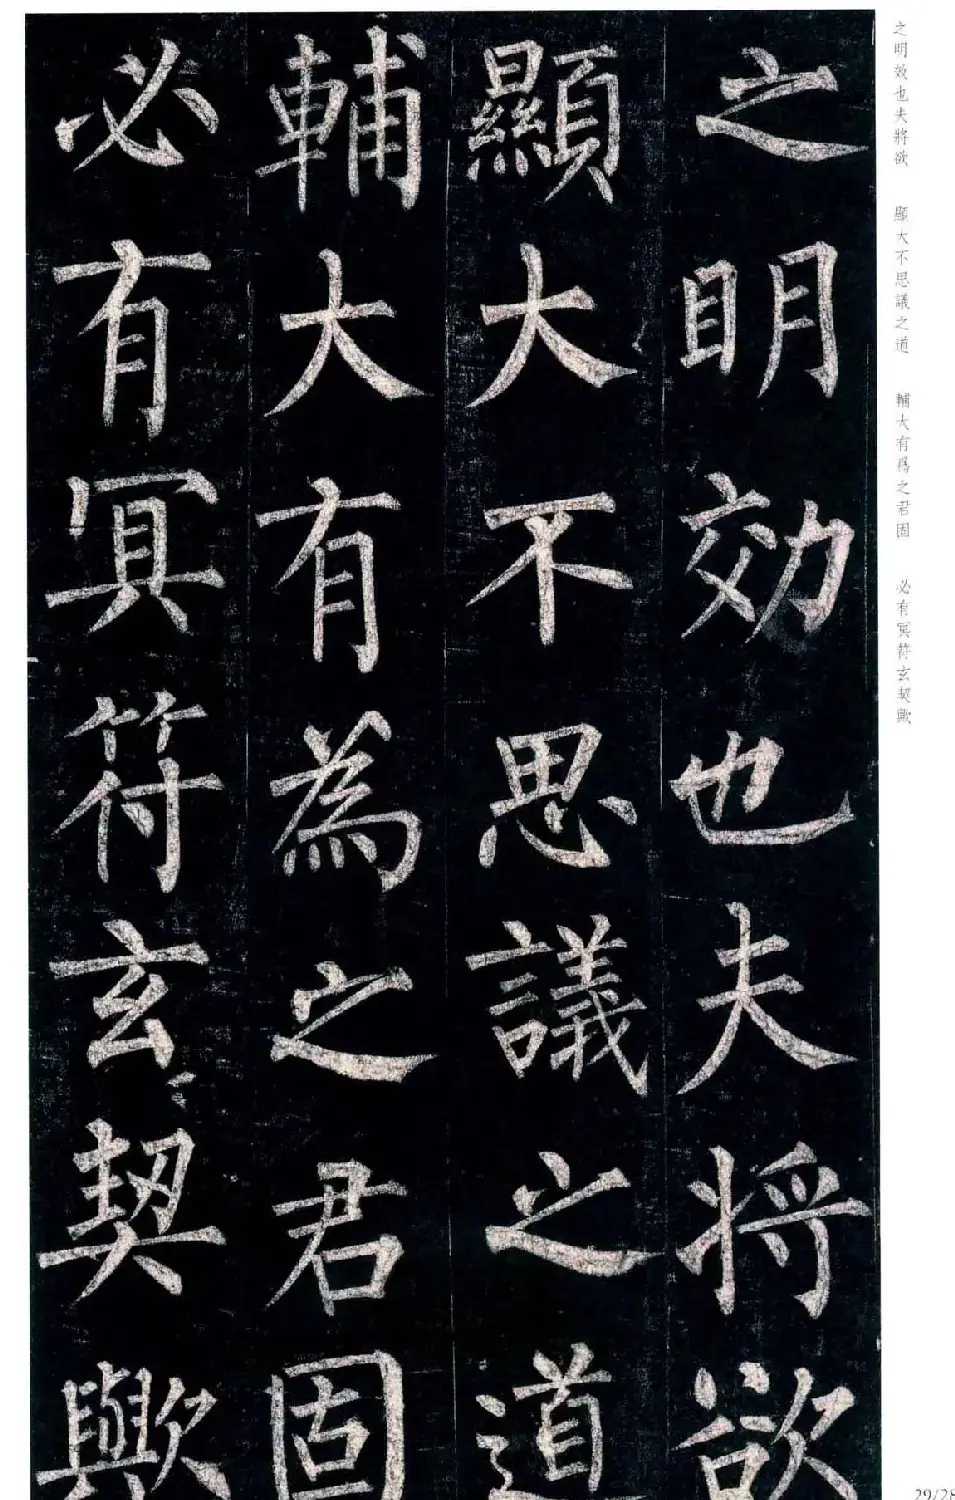 之明効也夫將欲
顯大不思議之道
輔大有為之君固
必有冥符玄契歟
之明效也夫將欲 顯大不思議之道 輔大有爲之君固 必有冥符玄契歟
29/28